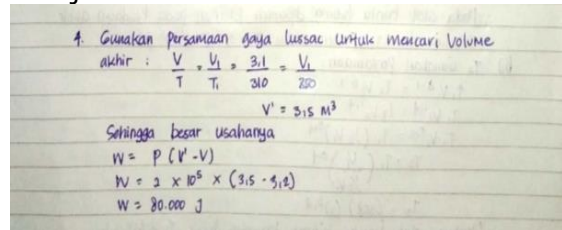 4. Gunakan persamaan gaya lussac untuk mencari Volume
akhir : V/T = V₁/T₁ = 3,1/310 = V₁/350
V' = 3,5 M³
Sehingga besar usahanya
W = P (V' - V)
W = 2 x 10⁵ x (3,5 - 3,2)
W = 80.000 J